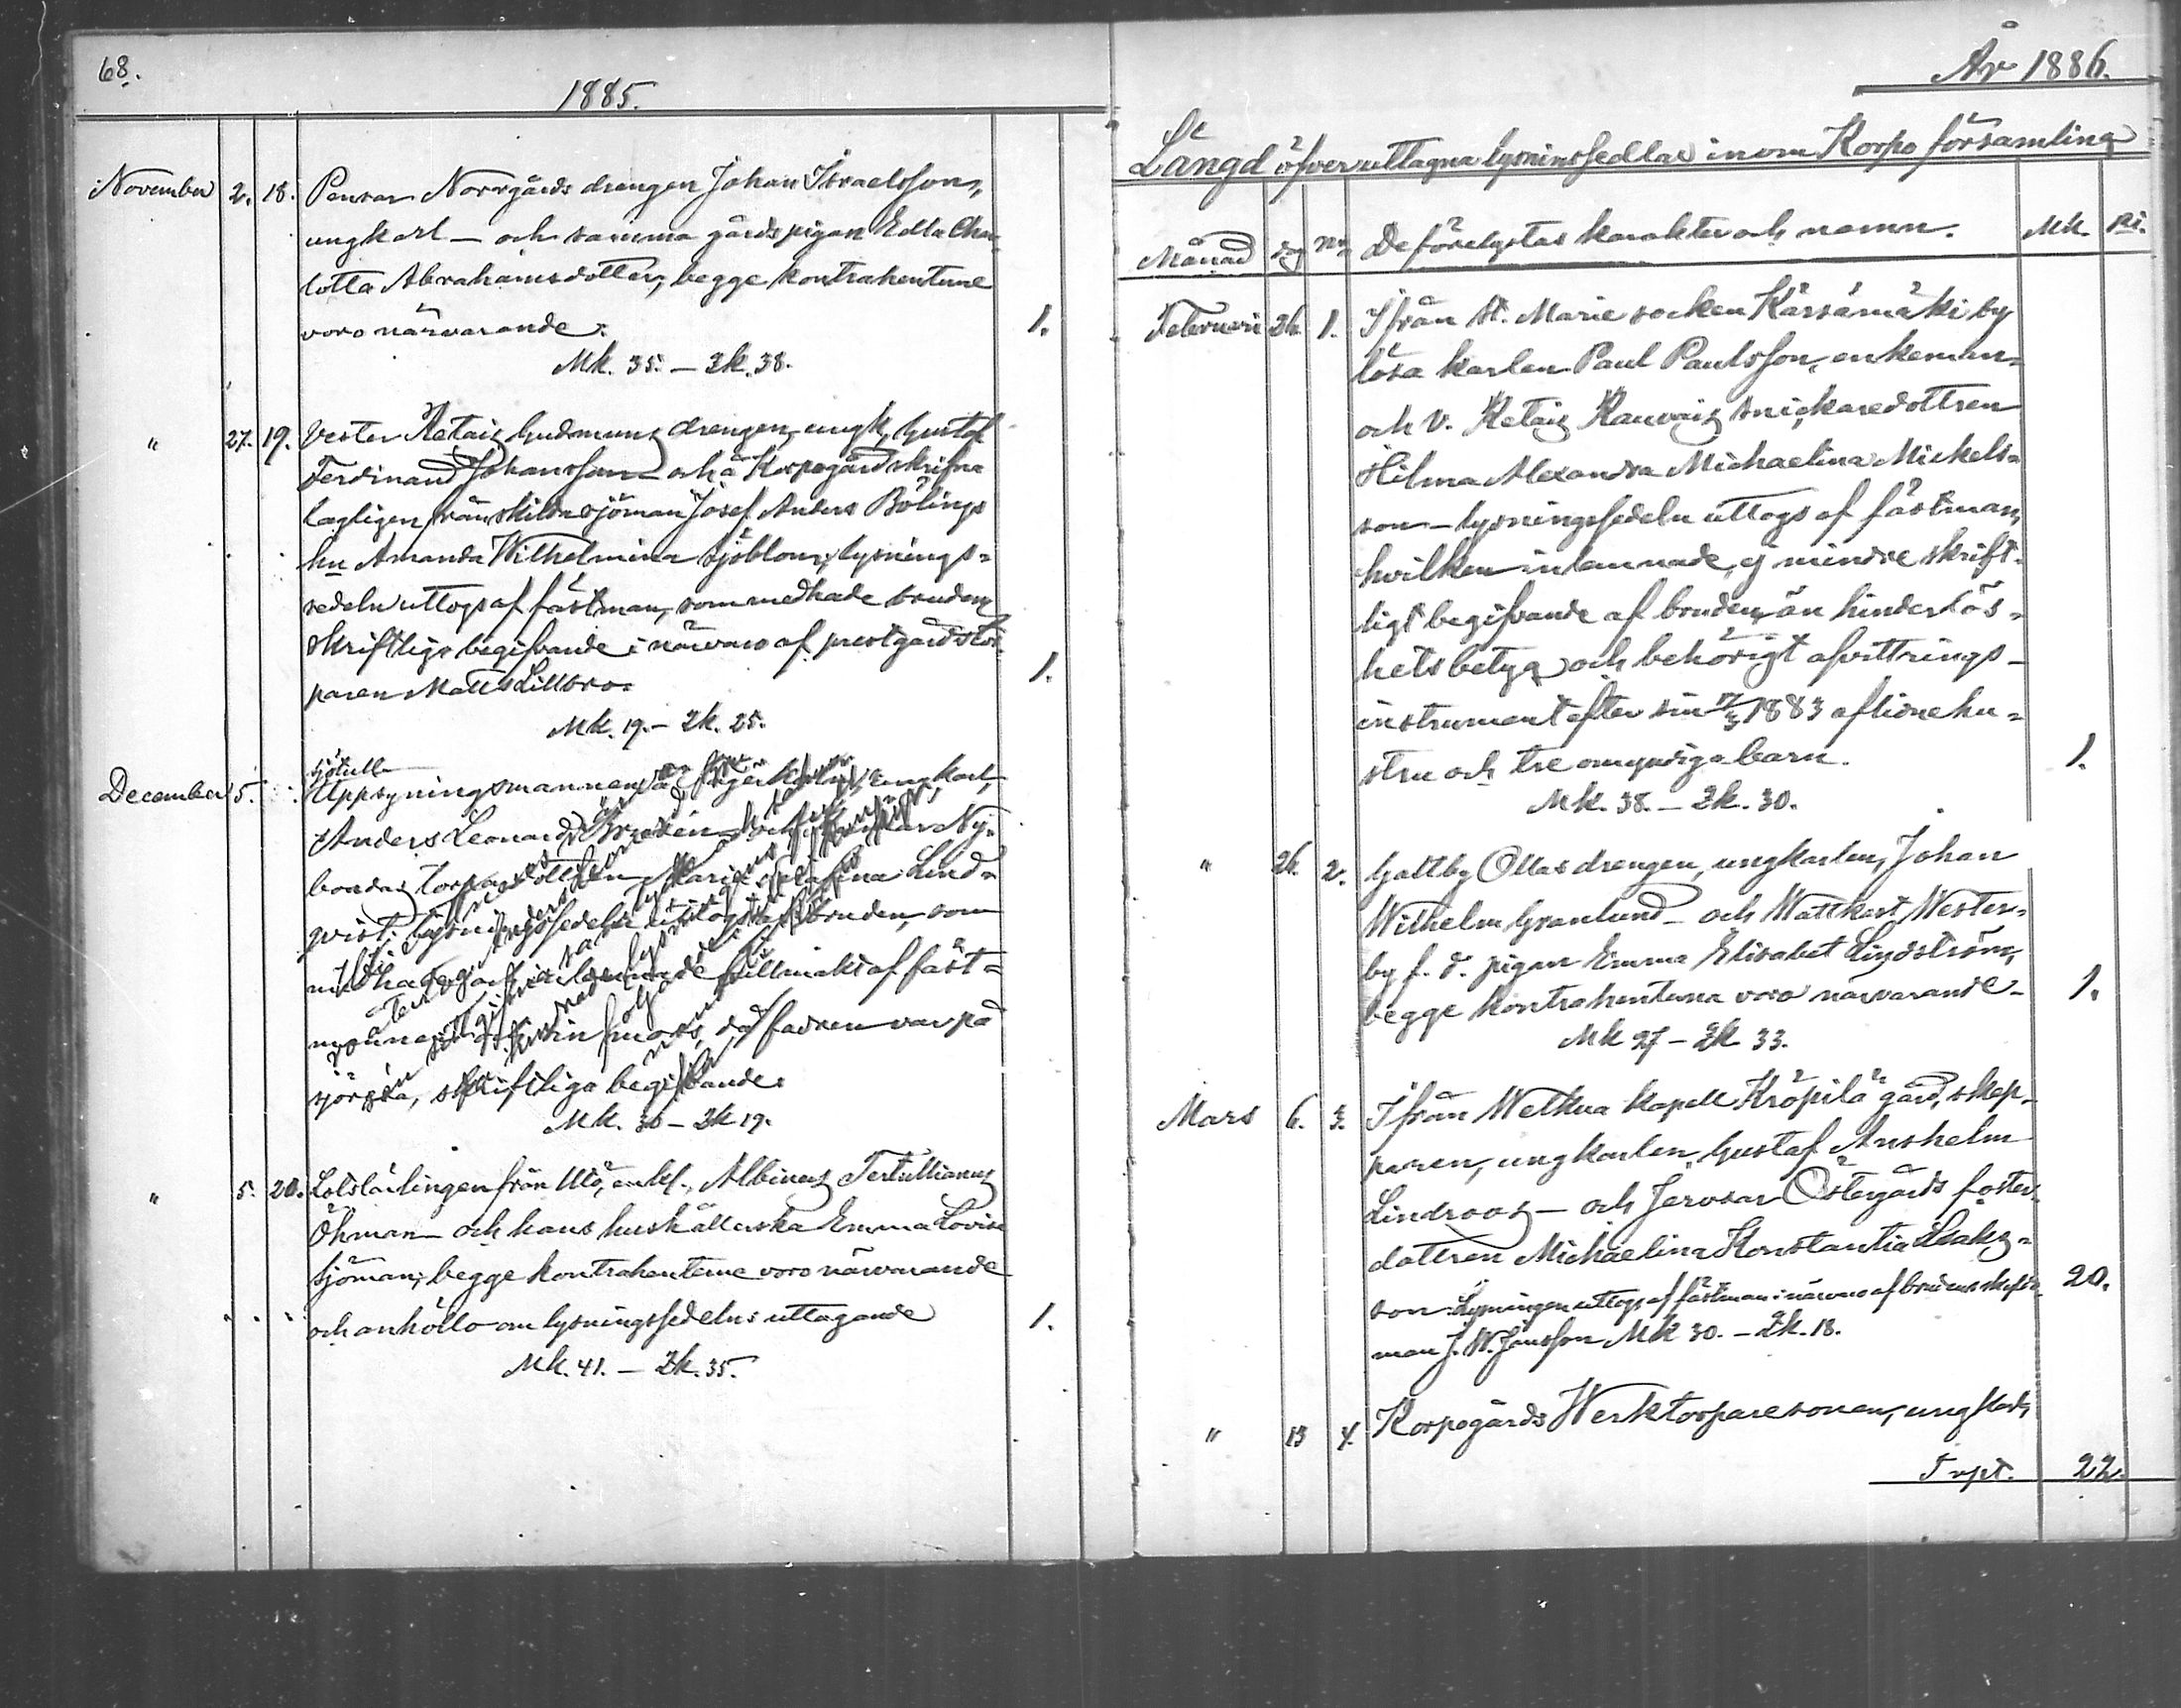 68.
1885.
November 2. 18. Pensar Norrgårds drengen Johan Israelsson,
ungkarl – och samma gårds pigan Edla Char-
lotta Abrahamsdotter, begge kontrahenterne
voro närvarande. 1.
Mk. 35. – Qk. 38.
" 27. 19. Vester Retais Gudmuns drengen, ungk. Gustaf
Ferdinand Johansson – och å Korpogård skrifna
lagligen frånskilda sjöman Josef Anders Bölings
hu Amanda Wilhelmina Sjöblom; lysnings-
sedeln uttogs af fästman, som medhade brudens
skriftliga begifvande i närvaro af prestgårdstor-
paren Matts Lillbro. 1.
Mk. 19. – Qk. 25.
sjötull
December 5. Uppsyningsmannen ungkarl,
Anders Leonard Ny-
bondas torparedottren Maria Serafina Lind-
qvist, lysningssedeln uttogs af bruden, som
fullmakt af fäst-
mannen mors, då fadren var på
sjöresa, skriftliga begifvande.
Mk. 36 – Qk 19.
" 5. 20. Lotslärlingen från Utö, enkl., Albinus Tertullianus
Öhman – och hans hushållerska Emma Lovisa
Sjöman; begge kontrahenterne voro närvarande
och anhöllo om lysningssedelns uttagande 1.
Mk. 41. – Qk. 35.
År 1886.
Längd öfver uttagna lysningssedlar inom Korpo församling
Månad dag No De förelystas karakter och namn. Mk. Pi.
Februari 26. 1. Ifrån St. Marie socken Kärsämäki by
lösa karlen Paul Paulsson, enkeman
och V. Retais Rauvais snickaredottren
Hilma Alexandra Michaelina Mickels-
son – lysningssedeln uttogs af fästman,
hvilken inlemnade, ej mindre skrift-
ligt begifvande af bruden, än hinderlös-
hetsbetyg och behörigt afvittrings-
instrument efter sin 1883 aflidne hu-
stru och tre omyndiga barn. 1.
Mk. 38. – Qk. 30.
" 26. 2. Galtby Ollas drengen, ungkarlen, Johan
Wilhelm Granlund – och Wattkast Wester-
by f. d. pigan Emma Elisabet Lindström,
begge kontrahenterna voro närvarande – 1.
Mk 27 – Qk 33.
Mars 6. 3. Ifrån Welkua kapell Kröpilä gård, skep-
paren, ungkarlen, Gustaf Anshelm
Lindroos – och Jervsar Östergårds foster-
dottren Michaelina Konstantia Isaks-
son. Lysningen uttogs af fästman i närvaro af brudens 20.
man J. W. Jansson Mk 30. – Qk. 18.
" 13 4. Korpogårds Werktorparesonen, ungkarl,
Trpt. 22.